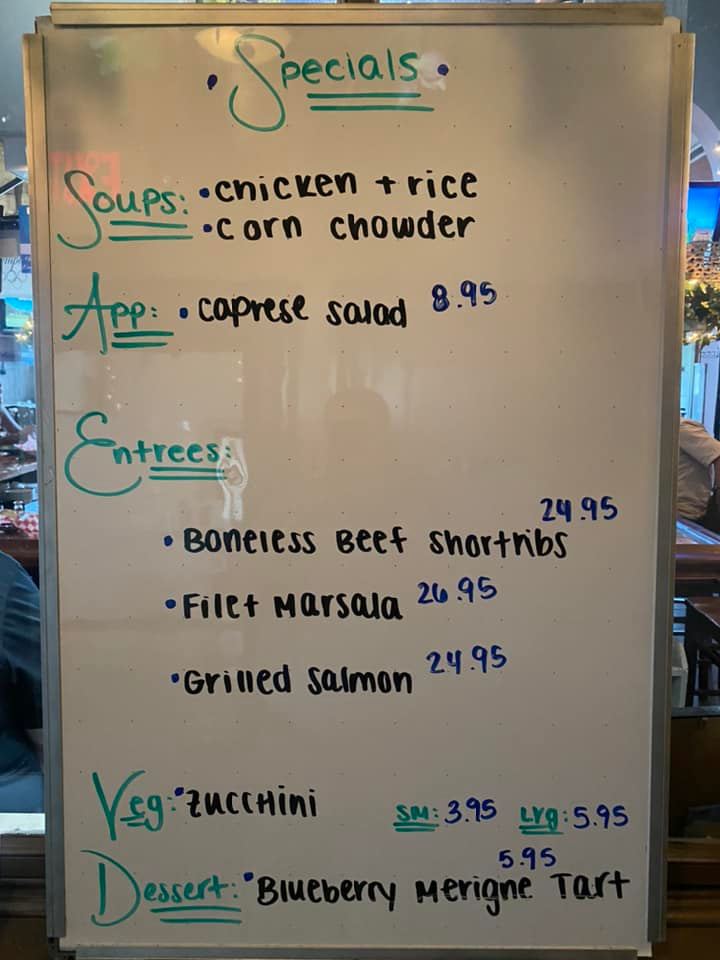 • Specials •
Soups: • chicken + rice
• corn chowder
App: • caprese salad 8.95
Entrees:
24.95
• Boneless Beef shortribs
• Filet Marsala 26.95
• Grilled salmon 24.95
Veg: • zucchini SM: 3.95 Lrg: 5.95
5.95
Dessert: • Blueberry Merigne Tart